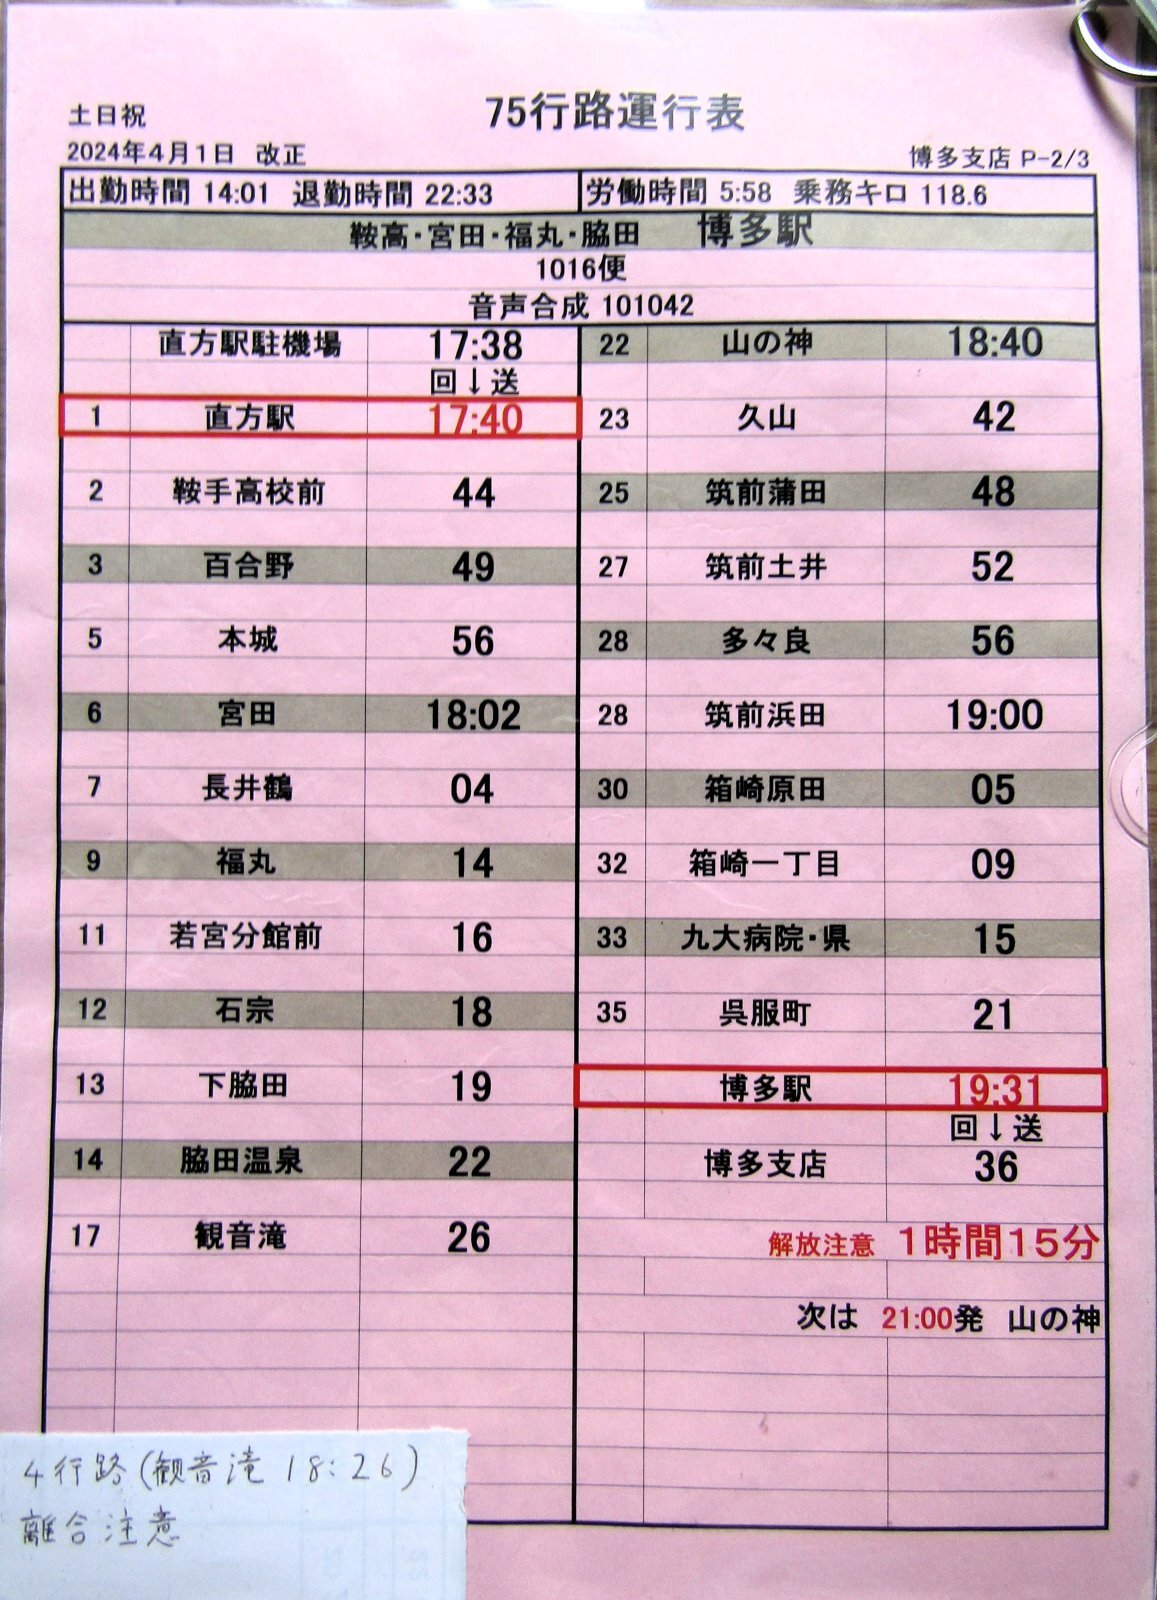 土日祝
75行路運行表
2024年4月1日 改正
博多支店 P-2/3
出勤時間 14:01 退勤時間 22:33 労働時間 5:58 乗務キロ 118.6
鞍高・宮田・福丸・脇田 博多駅
1016便
音声合成 101042
直方駅駐機場 17:38
回↓送
1 直方駅 17:40
2 鞍手高校前 44
3 百合野 49
5 本城 56
6 宮田 18:02
7 長井鶴 04
9 福丸 14
11 若宮分館前 16
12 石宗 18
13 下脇田 19
14 脇田温泉 22
17 観音滝 26
22 山の神 18:40
23 久山 42
25 筑前蒲田 48
27 筑前土井 52
28 多々良 56
28 筑前浜田 19:00
30 箱崎原田 05
32 箱崎一丁目 09
33 九大病院・県 15
35 呉服町 21
博多駅 19:31
回↓送
博多支店 36
解放注意 1時間15分
次は 21:00発 山の神
4行路(観音滝 18:26)
離合注意